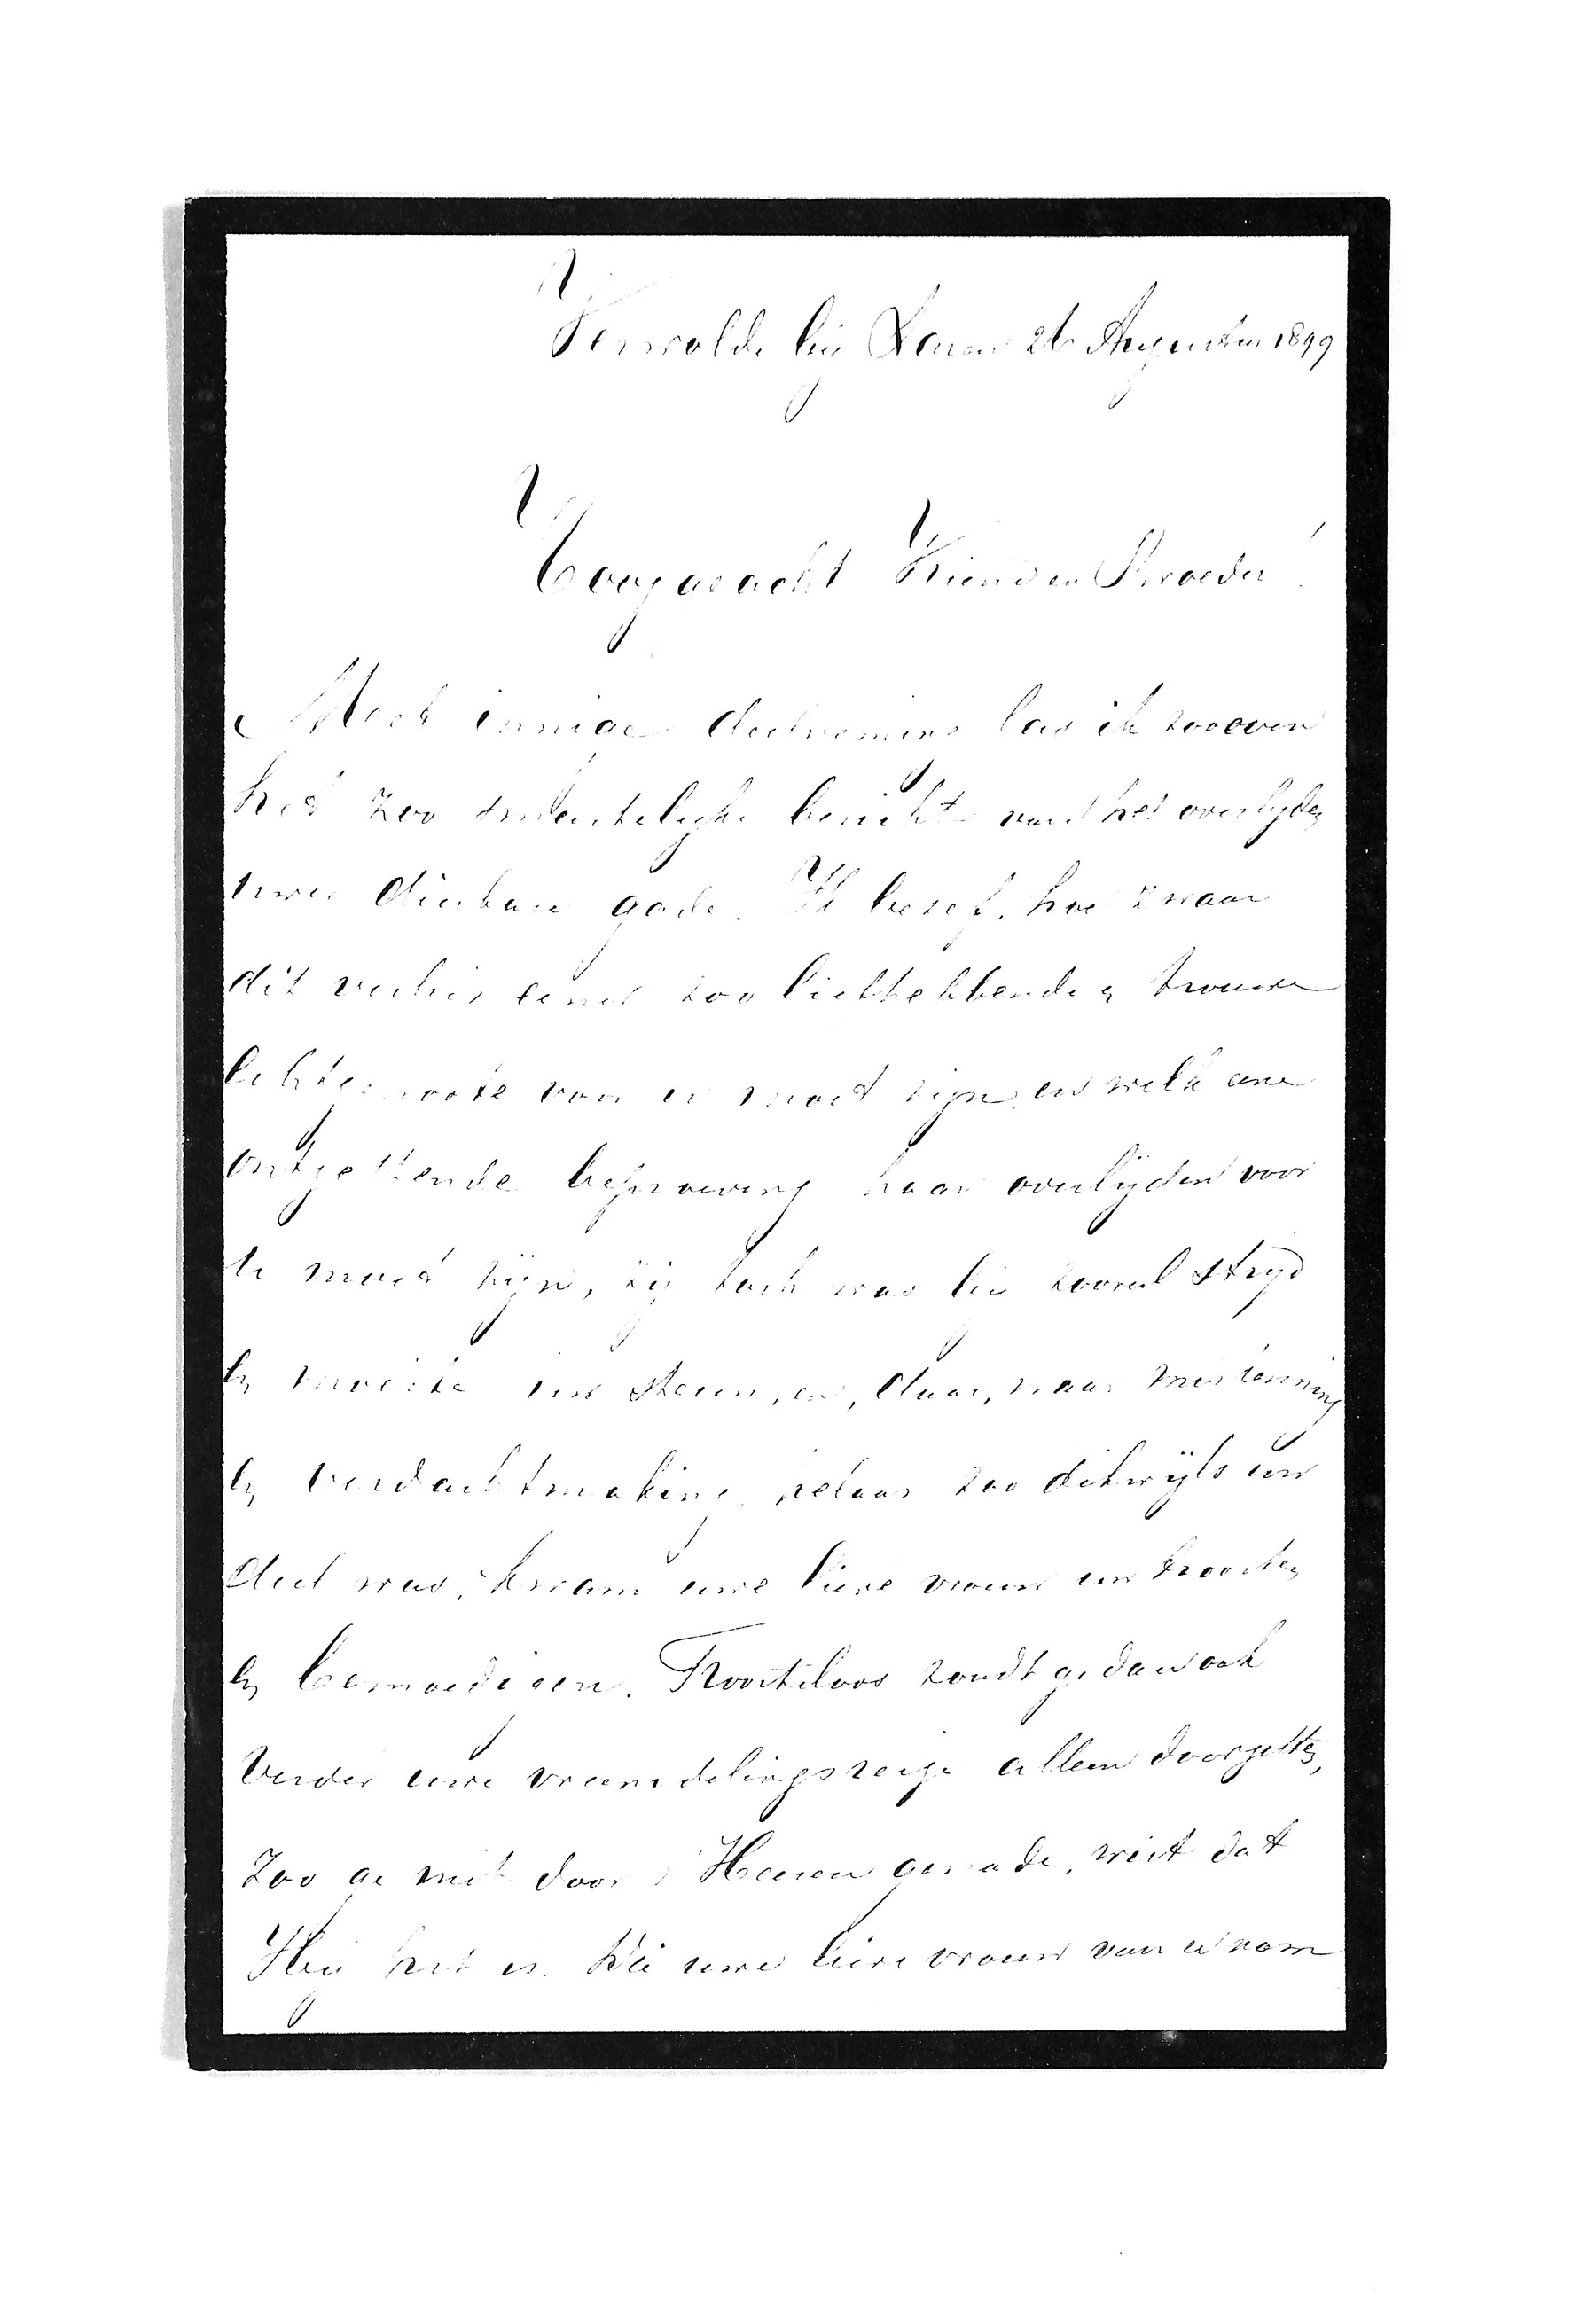 Verwolde bij Laren 26 Augustus 1899
Hooggeacht Vriend en Broeder!
Met innige deelneming las ik zooeven
het zoo smartelijke bericht van het overlijden
uwer dierbare gade. Ik besef, hoe zwaar
dit verlies eener zoo liefhebbende en trouwe
Echtgenoote voor u moet zijn, en welk eene
ontzettende beproeving haar overlijden voor
u moet zijn, zij toch was bij zooveel strijd
en moeite uw steun, en, daar, waar miskenning
en verdachtmaking helaas zoo dikwijls uw
deel was, kwam uwe lieve vrouw um troosten
en bemoedigen. Troosteloos zoudt ge dan ook
verder uwe vreemdelingsreize alleen voortzetten,
zoo ge niet door 's Heeren genade, wist dat
Hij het is, die uwe lieve vrouw van u nam